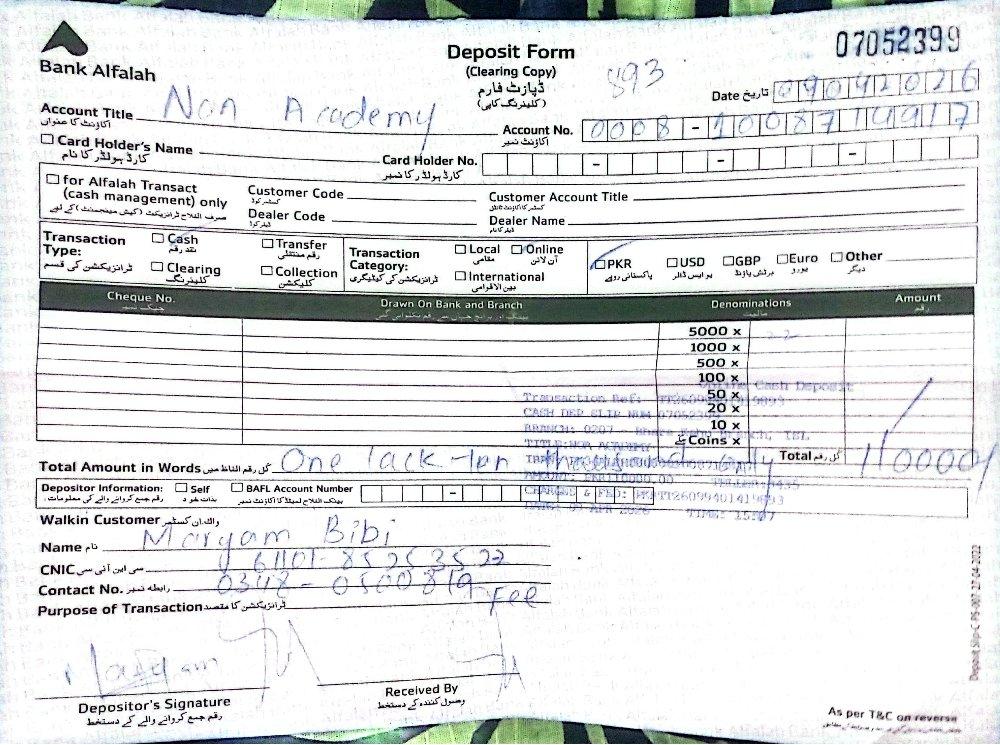 Bank Alfalah
Deposit Form
(Clearing Copy)
ڈپازٹ فارم
(کلیئرنگ کاپی)
893
07052399
Date تاریخ 09042026
Account Title Non Academy
اکاؤنٹ کا عنوان
Account No. 0008-1008714917
اکاؤنٹ نمبر
Card Holder's Name
کارڈ ہولڈر کا نام
Card Holder No.
کارڈ ہولڈر کا نمبر
for Alfalah Transact
(cash management) only
Customer Code
Customer Account Title
Dealer Code
Dealer Name
Transaction Type:
ٹرانزیکشن کی قسم
Cash نقد رقم
Transfer رقم منتقلی
Clearing کلیئرنگ
Collection کلیکشن
Transaction Category:
ٹرانزیکشن کی کیٹیگری
Local مقامی
Online آن لائن
International بین الاقوامی
PKR پاکستانی روپے
USD یو ایس ڈالر
GBP برٹش پاؤنڈ
Euro یورو
Other دیگر
Cheque No.
Drawn On Bank and Branch
Denominations
Amount رقم
5000 x
1000 x
500 x
100 x
50 x
20 x
10 x
Coins سکے x
Online Cash Deposit
Transaction Ref:
CASH DEP SLIP NUM 07052399
BRANCH: 0207
TITLE:NON ACADEMY
Total Amount in Words کل رقم الفاظ میں One lack ten
Total کل رقم 110000/
AMOUNT: PKR110000.00
Depositor Information:
رقم جمع کروانے والے کی معلومات
Self بذات خود
BAFL Account Number
CHARGES & FED:
DATE: 09 APR 2026 TIME:
Walkin Customer واک ان کسٹمر
Name نام Maryam Bibi
CNIC سی این آئی سی 61101-8525352
Contact No. رابطہ نمبر 0348-0500819
Purpose of Transaction ٹرانزیکشن کا مقصد Fee
Maryam
Depositor's Signature
رقم جمع کروانے والے کے دستخط
Received By
وصول کنندہ کے دستخط
Deposit Slip-C PS-007 27-04-2022
As per T&C on reverse